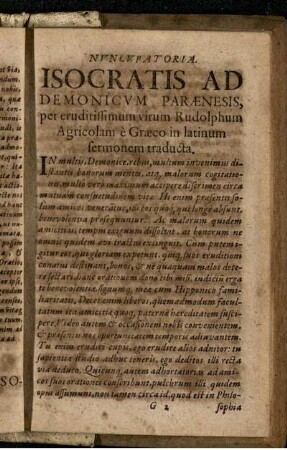 NVNCVPATORIA.
ISOCRATIS AD
DEMONICVM PARÆNESIS,
per eruditissimum virum Rudolphum
Agricolam è Græco in latinum
sermonem traducta.
IN multis, Demonice, rebus, multum invenimus di-
stantes bonorum mentes, atq; malorum cogitatio-
nes, multo vero maximum accipere discrimen circa
mutuam consuetudinem vitæ. Hi enim præsentes so-
lum amicos venerãtur, illi hos quoq; qui longe absunt,
benevolentia prosequuntur. Ac malorum quidem
amicitias, tempus exiguum dissolvit, at bonorum ne
omne quidem ævo tractus exinguit. Cum putem i-
gitur eos, qui gloriam expetunt, quiq; suos eruditioni
conatus destinant, bonos, & ne quaquam malos dete-
re
te benevolentiæ signum, meæ cum Hipponico fami-
liaritatis, Decet enim liberos, quemadmodum facul-
tatum ita amicitiæ quoq; paternæ hereditatem susci-
pere. Video autem & occasionem nobis convenientem,
& præsentis nos oportunitatem temporis adiuvantem.
Tu enim erudiri cupis, ego erudire alios adnitor: tu
sapientiæ studio adhuc teneris, ego deditos illi recta
via deduco. Quicunq; autem adhortatorias ad ami-
cos suos orationes conscribunt, pulchrum illi quidem
opus assumunt, non tamen circa id, quod est in Philo-
G 2 sophia
SO-